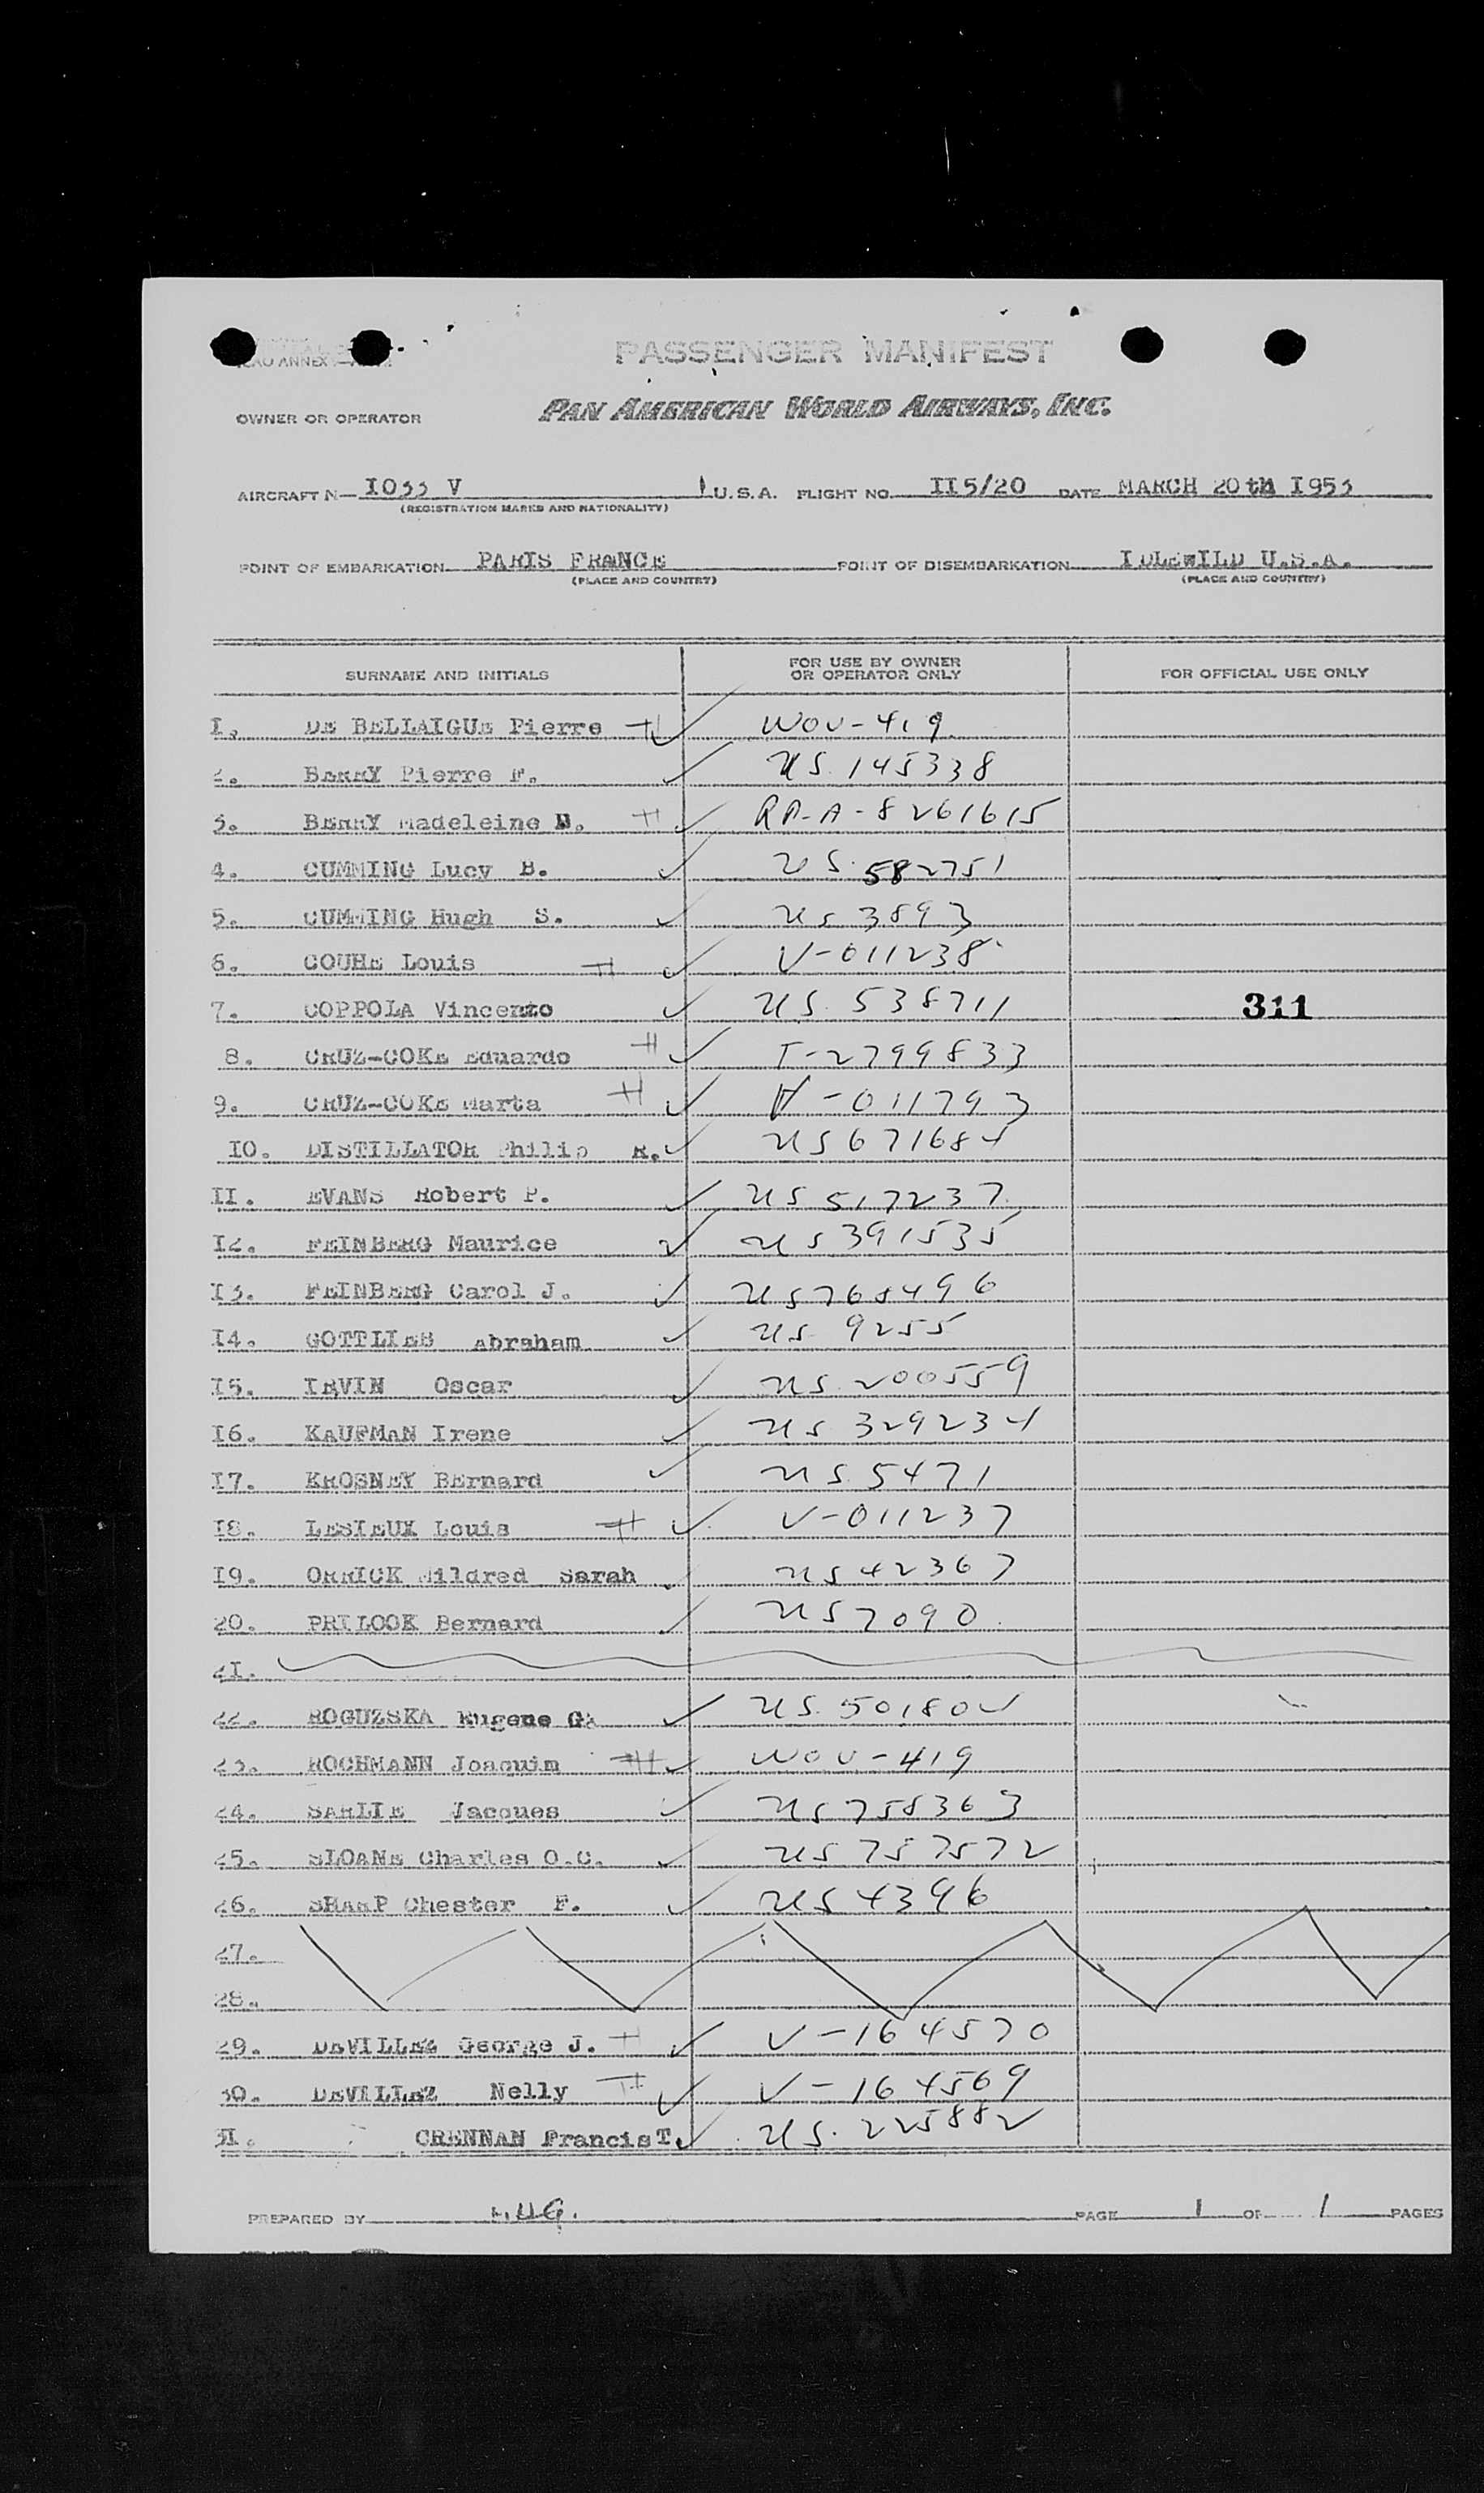 PASSENGER MANIFEST
OWNER OR OPERATOR PAN AMERICAN WORLD AIRWAYS, INC.
AIRCRAFT N— I033 V U.S.A. FLIGHT NO. II5/20 DATE MARCH 20th I953
(REGISTRATION MARKS AND NATIONALITY)
POINT OF EMBARKATION PARIS FRANCE POINT OF DISEMBARKATION IDLEWILD U.S.A.
(PLACE AND COUNTRY) (PLACE AND COUNTRY)
SURNAME AND INITIALS FOR USE BY OWNER OR OPERATOR ONLY FOR OFFICIAL USE ONLY
I. DE BELLAIGUE Pierre # ✓ WOV-419
2. BERRY Pierre F. ✓ US 145338
3. BERRY Madeleine # ✓ RP-A-8261615
4. CUMMING Lucy B. ✓ US 582751
5. CUMMING Hugh S. ✓ US 3893
6. COUHE Louis # ✓ V-011238
7. COPPOLA Vincenzo ✓ US. 538711 311
8. CRUZ-COKE Eduardo # ✓ T-2799833
9. CRUZ-COKE Marta # ✓ V-011793
IO. DISTILLATOR Philip R. ✓ US 671684
II. EVANS Robert P. ✓ US 517237
I2. FEINBERG Maurice ✓ US 391535
I3. FEINBERG Carol J. ✓ US 768496
I4. GOTTLIEB Abraham ✓ US 9255
I5. IRVIN Oscar ✓ US 200559
I6. KAUFMAN Irene ✓ US 329234
I7. KROSNEY BErnard ✓ US 5471
I8. LESIEUX Louis # ✓ V-011237
I9. ORRICK Mildred Sarah ✓ US 42367
20. PRILOOK Bernard ✓ US 7090
2I.
22. ROGUZSKA Eugene G. ✓ US. 501802
23. ROCHMANN Joaquim # ✓ WOV-419
24. SARLIE Jacques ✓ US 758363
25. SLOANE Charles O.C. ✓ US 757572
26. SHARP Chester F. ✓ US 4396
27.
28.
29. DEVILLEZ George J. # ✓ V-164570
30. DEVILLEZ Nelly # ✓ V-164569
3I. CRENNAN Francis T. ✓ US. 225882
PREPARED BY PAGE 1 OF 1 PAGES